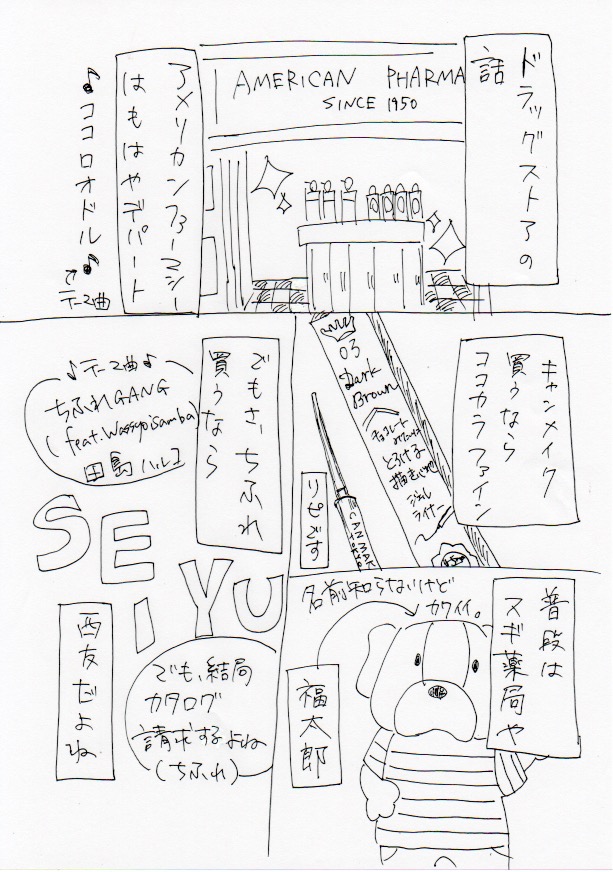 ドラッグストアの
話
AMERICAN PHARMA
SINCE 1950
アメリカンファーマシー
はもはやデパート
♪ココロオドル♪
テーマ曲
キャンメイク
買うなら
ココカラファイン
03
Dark
Brown
とろける
描き心地
ジェル
ライナー
CANMAKE
TOKYO
リピです
でもさ、ちふれ
買うなら
♪テーマ曲♪
ちふれGANG
(feat.Wassyoisamba)
田島ハルコ
SE
IYU
西友だよね
でも、結局
カタログ
請求するよね
(ちふれ)
普段は
スギ薬局や
名前知らないけど
カワイイ。
福太郎